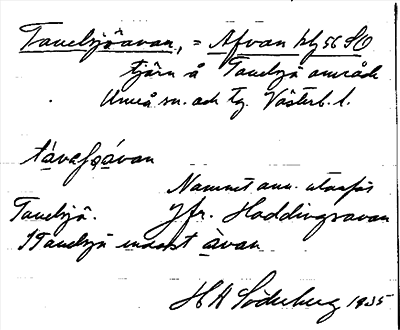 Tavelsjöavan, = Afvan bl 56 SO
tjärn å Tavelsjö område
Umeå sn. och tg. Västerb. l.
tàvəlsjøàvan
Namnet anv. utanför
Tavelsjö. Jfr. Haddingsavan
I Tavelsjö endast àvan
H A Söderberg 1935